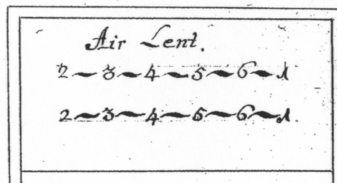 Air Lent.
2~3~4~5~6~1
2~3~4~5~6~1